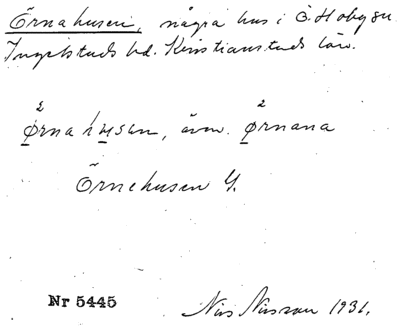 Örnahusen, några hus i Ö. Hoby sn
Ingelstads hd. Kristianstads län.
Ørnahusen, även. Ørnana
Örnehusen G.
Nr 5445
Nils Nilsson 1931.